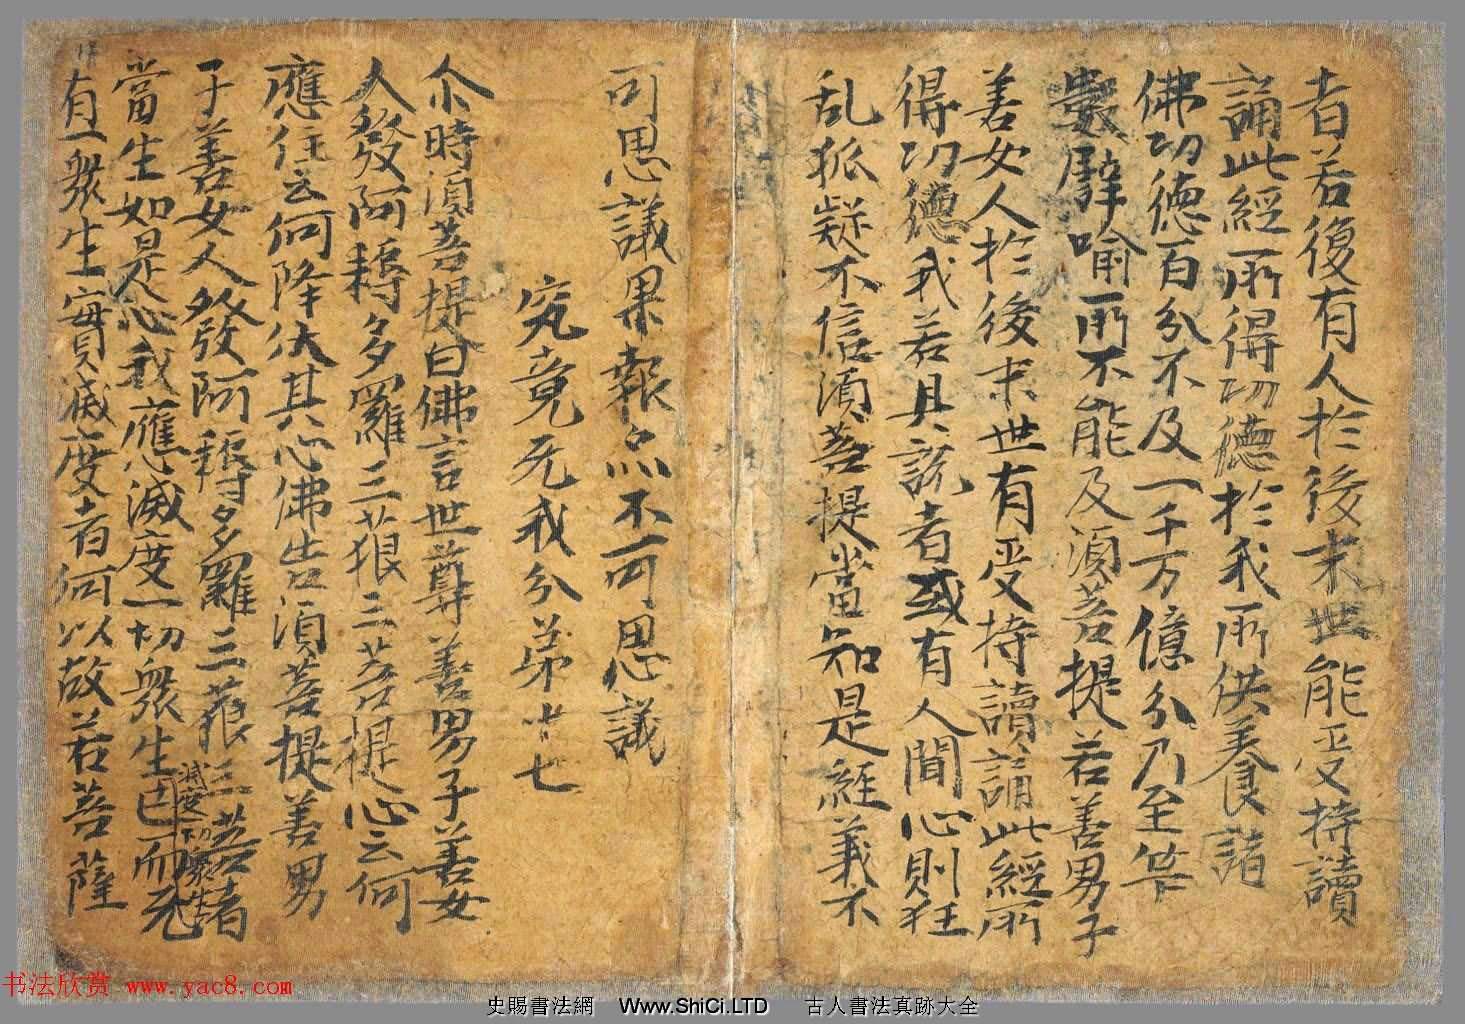 者若復有人於後末世能受持讀
誦此經所得功德於我所供養諸
佛功德百分不及一千万億分乃至笇
數譬喻所不能及須菩提若善男子
善女人於後末世有受持讀誦此經所
得功德我若具說者或有人聞心則狂
乱狐疑不信須菩提當知是經義不
可思議果報亦不可思議
究竟无我分弟十七
尒時須菩提白佛言世尊善男子善女
人發阿耨多羅三藐三菩提心云何
應住云何降伏其心佛告須菩提善男
子善女人發阿耨多羅三藐三菩者
當生如是心我應滅度一切衆生已而无
滅度一切衆生
有一衆生實滅度者何以故若菩薩
书法欣赏 www.yac8.com
史賜書法網 Www.ShiCi.LTD 古人書法真跡大全